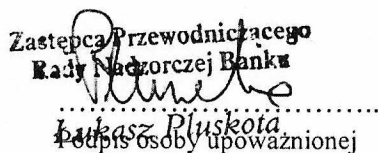 Zastępca Przewodniczącego
Rady Nadzorczej Banku
Łukasz Pluskota
Podpis osoby upoważnionej